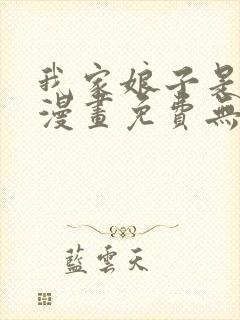 我家娘子是
漫畫免費無
藍雲天